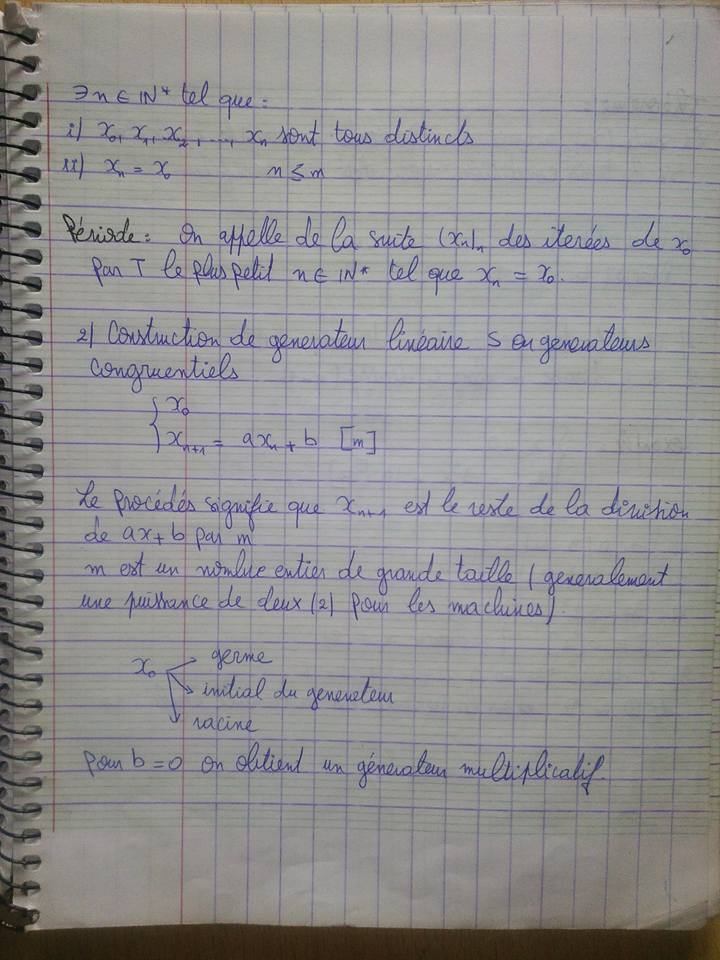 ∃n ∈ IN* tel que:
i) x₀, x₁, x₂, ..., xₙ sont tous distincts
ii) xₙ = x₀ n ≤ m
Période: On appelle de la suite (xₙ)ₙ des iterées de x₀
par T le plus petit n ∈ IN* tel que xₙ = x₀.
2) Construction de generateur linéaire S ou generateurs
congruentiels
{ x₀
{ xₙ₊₁ = axₙ + b [m]
Le procédés signifie que xₙ₊₁ est le reste de la division
de ax+b par m
m est un nombre entier de grande taille (generalement
une puissance de deux (2) pour les machines)
x₀ germe
initial du generateur
racine
Pour b=0 on obtient un générateur multiplicatif.